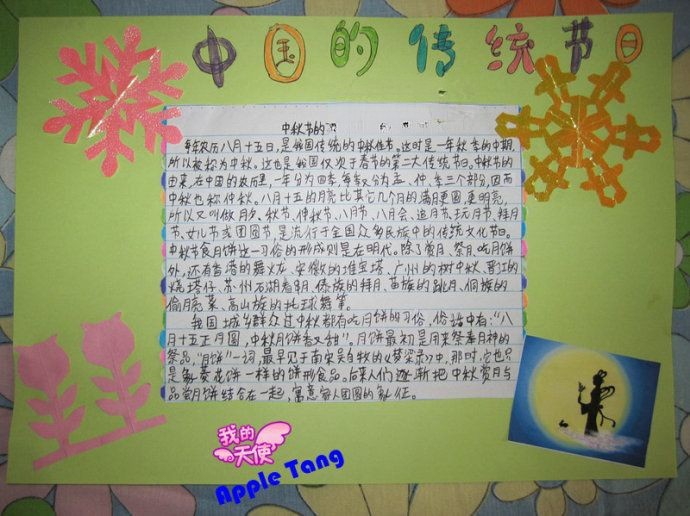 中国的传统节日
中秋节的
每年农历八月十五日,是我国传统的中秋佳节。这时是一年秋季的中期,
所以被称为中秋。这也是我国仅次于春节的第二大传统节日。中秋节的
由来,在中国的农历里,一年分为四季,每季又分为孟、仲、季三个部分,因而
中秋也称仲秋。八月十五的月亮比其它几个月的满月更圆,更明亮,
所以又叫做月夕,秋节、仲秋节、八月节、八月会、追月节、玩月节、拜月
节、女儿节或团圆节,是流行于全国众多民族中的传统文化节日。
中秋节食月饼这一习俗的形成则是在明代。除了赏月、祭月、吃月饼
外,还有香港的舞火龙、安徽的堆宝塔、广州的树中秋、晋江的
烧塔仔、苏州石湖看串月、傣族的拜月、苗族的跳月、侗族的
偷月亮菜、高山族的托球舞等。
我国城乡群众过中秋都有吃月饼的习俗,俗话中有:“八
月十五月正圆,中秋月饼香又甜”。月饼最初是用来祭奉月神的
祭品,“月饼”一词,最早见于南宋吴自牧的《梦梁录》中,那时,它也只
是象菱花饼一样的饼形食品。后来人们逐渐把中秋赏月与
品尝月饼结合在一起,寓意家人团圆的象征。
我的
天使
Apple Tang